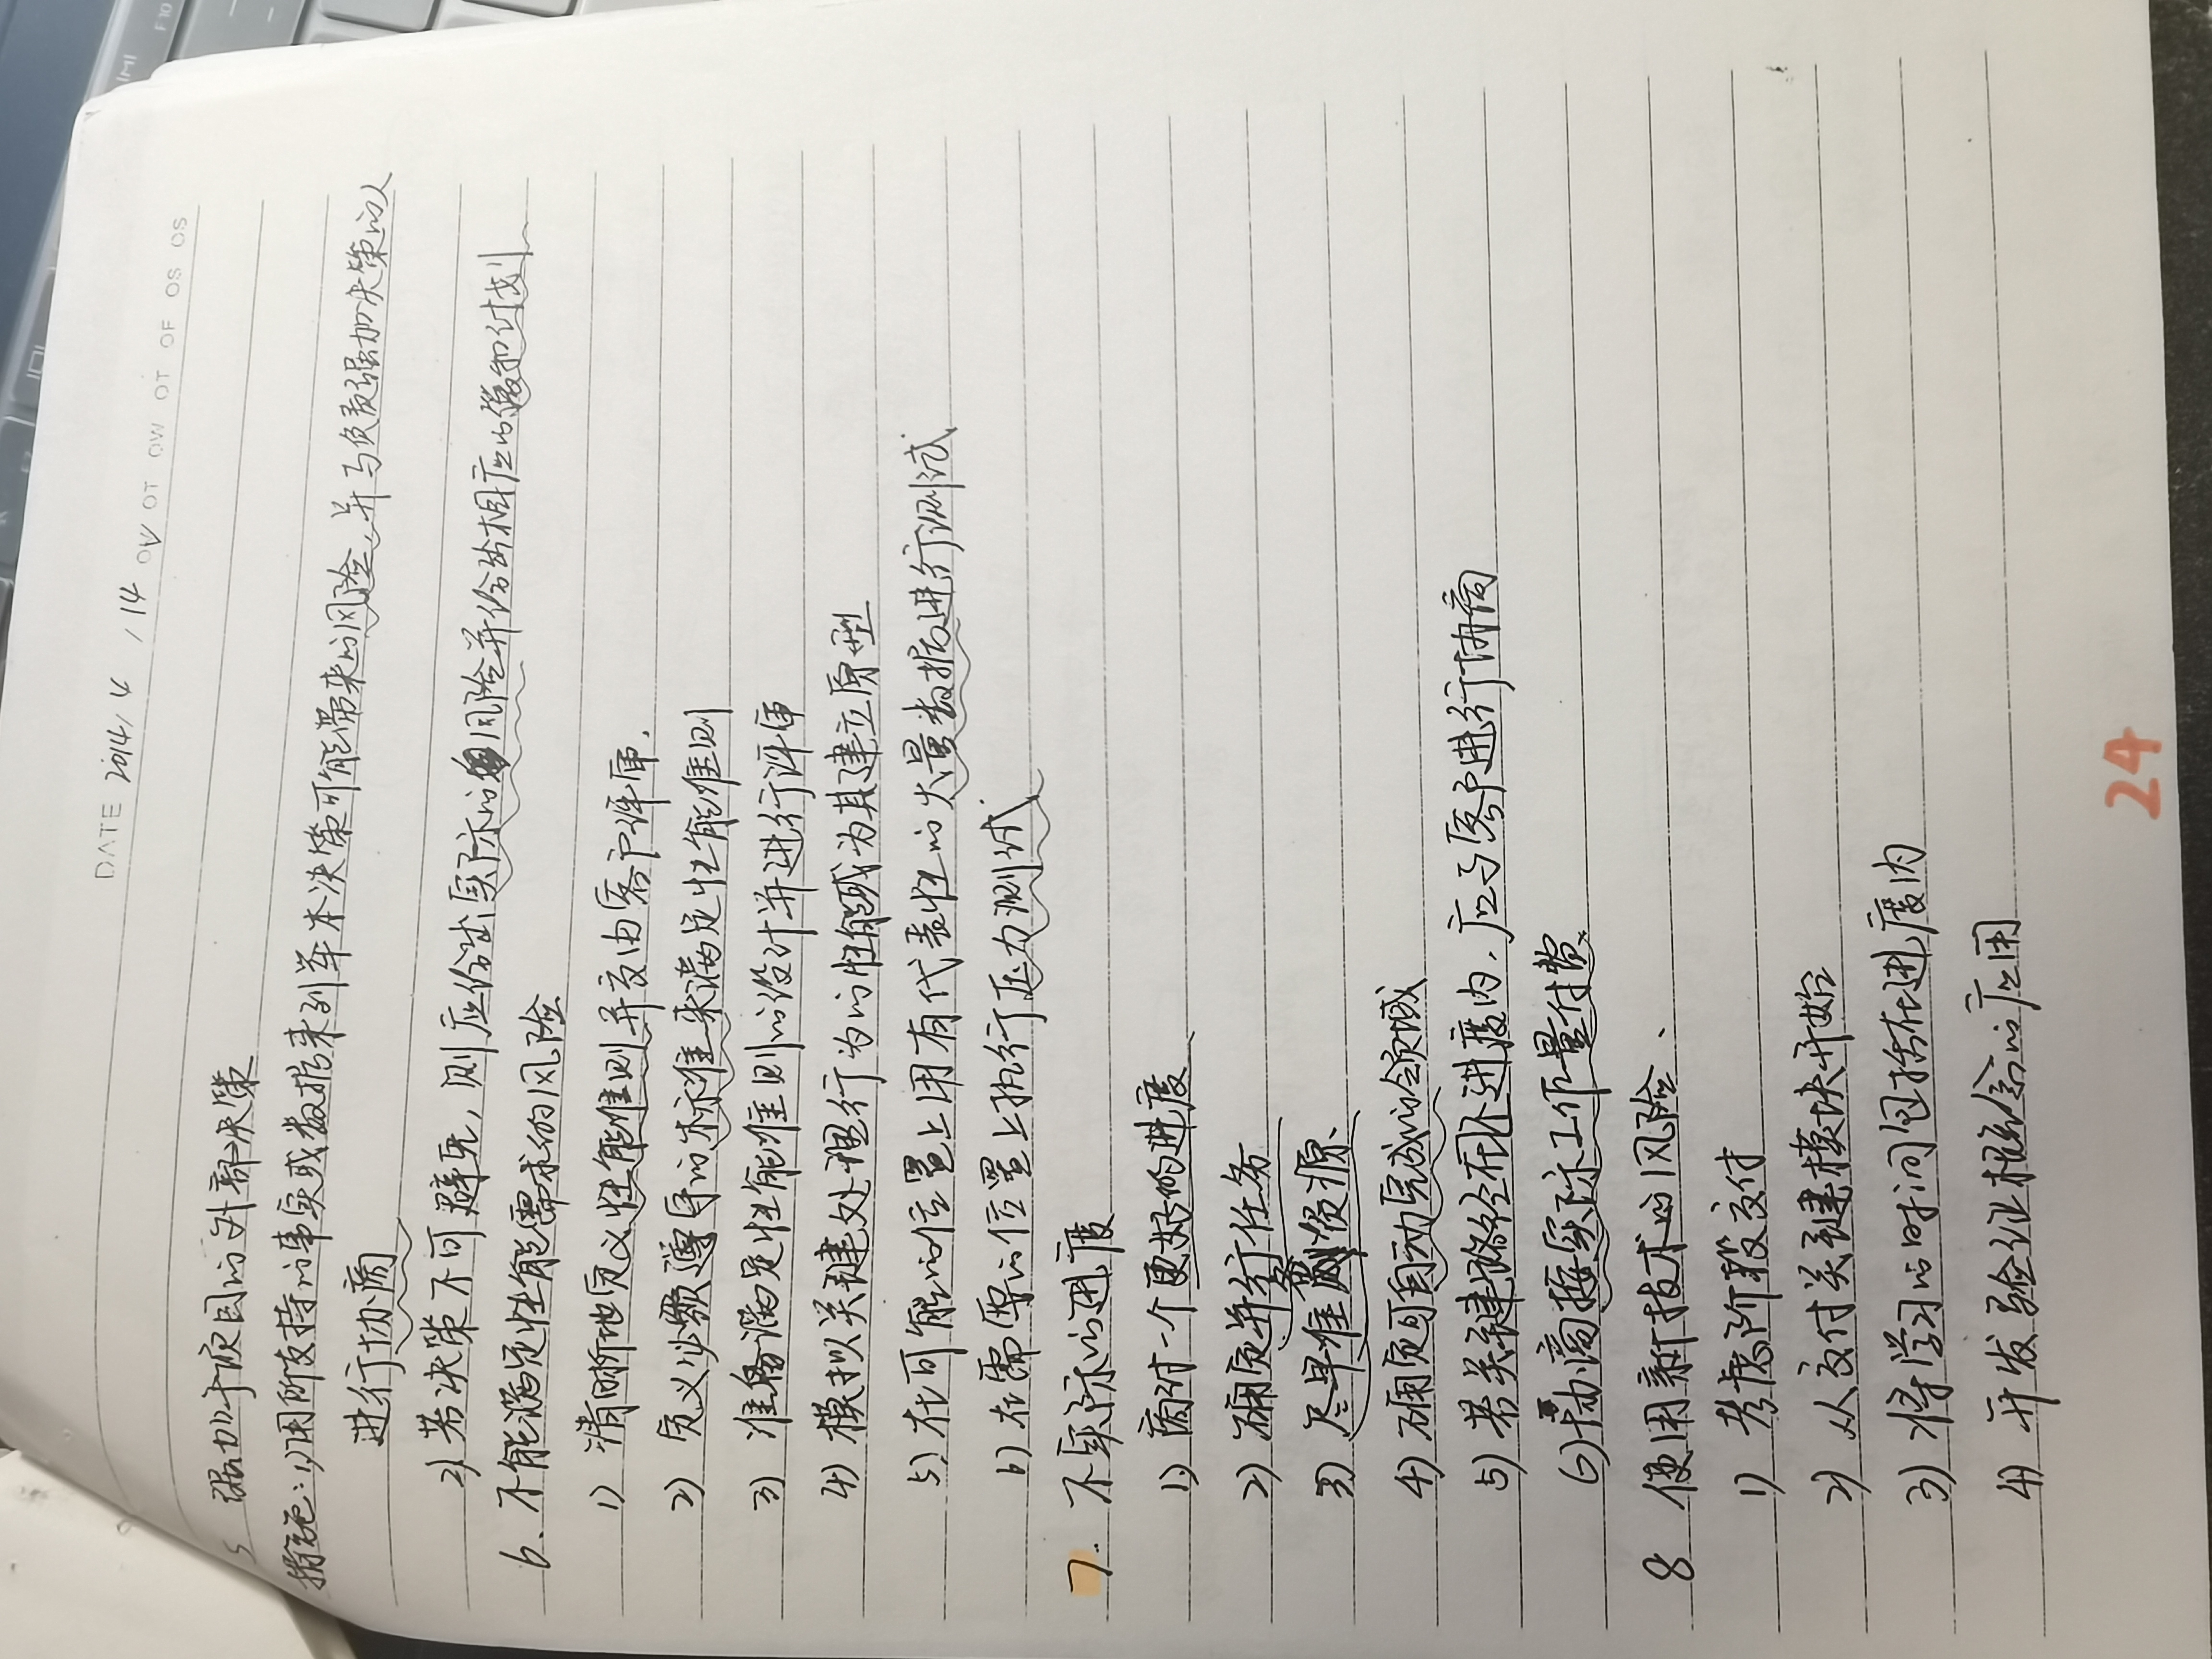 DATE 2014/4/14 OV OT OW OT OF OS OS
5 强加于项目的外部决策
措施:1)用所支持的事实或数据来列举本决策可能带来的风险,并与负责强加决策的人
进行协商
2)若决策不可避免,则应估出实际的风险并估出相应的缓和计划
6、不能满足性能需求的风险
1) 清晰地定义性能准则并交由客户评审.
2) 定义必须遵守的标准来满足性能准则
3) 准备满足性能准则的设计并进行评审
4) 模拟以关键处理行为的性能或为其建立原型
5) 在可能的位置上用有代表性的大量数据进行测试
6) 在需要的位置上执行压力测试.
7. 不实际的进度
1) 商讨一个更好的进度
2) 确定并行任务
3) 尽早准备资源.
4) 确定可自动完成的领域
5) 若关键路径不在进度内,应与客户进行协商
6)协商按实际工作量付费.
8 使用新技术的风险、
1) 考虑阶段交付
2) 从交付关键模块开始
3) 将学习的时间包括在进度内
4) 开发验证概念的应用
24
IMI
F10